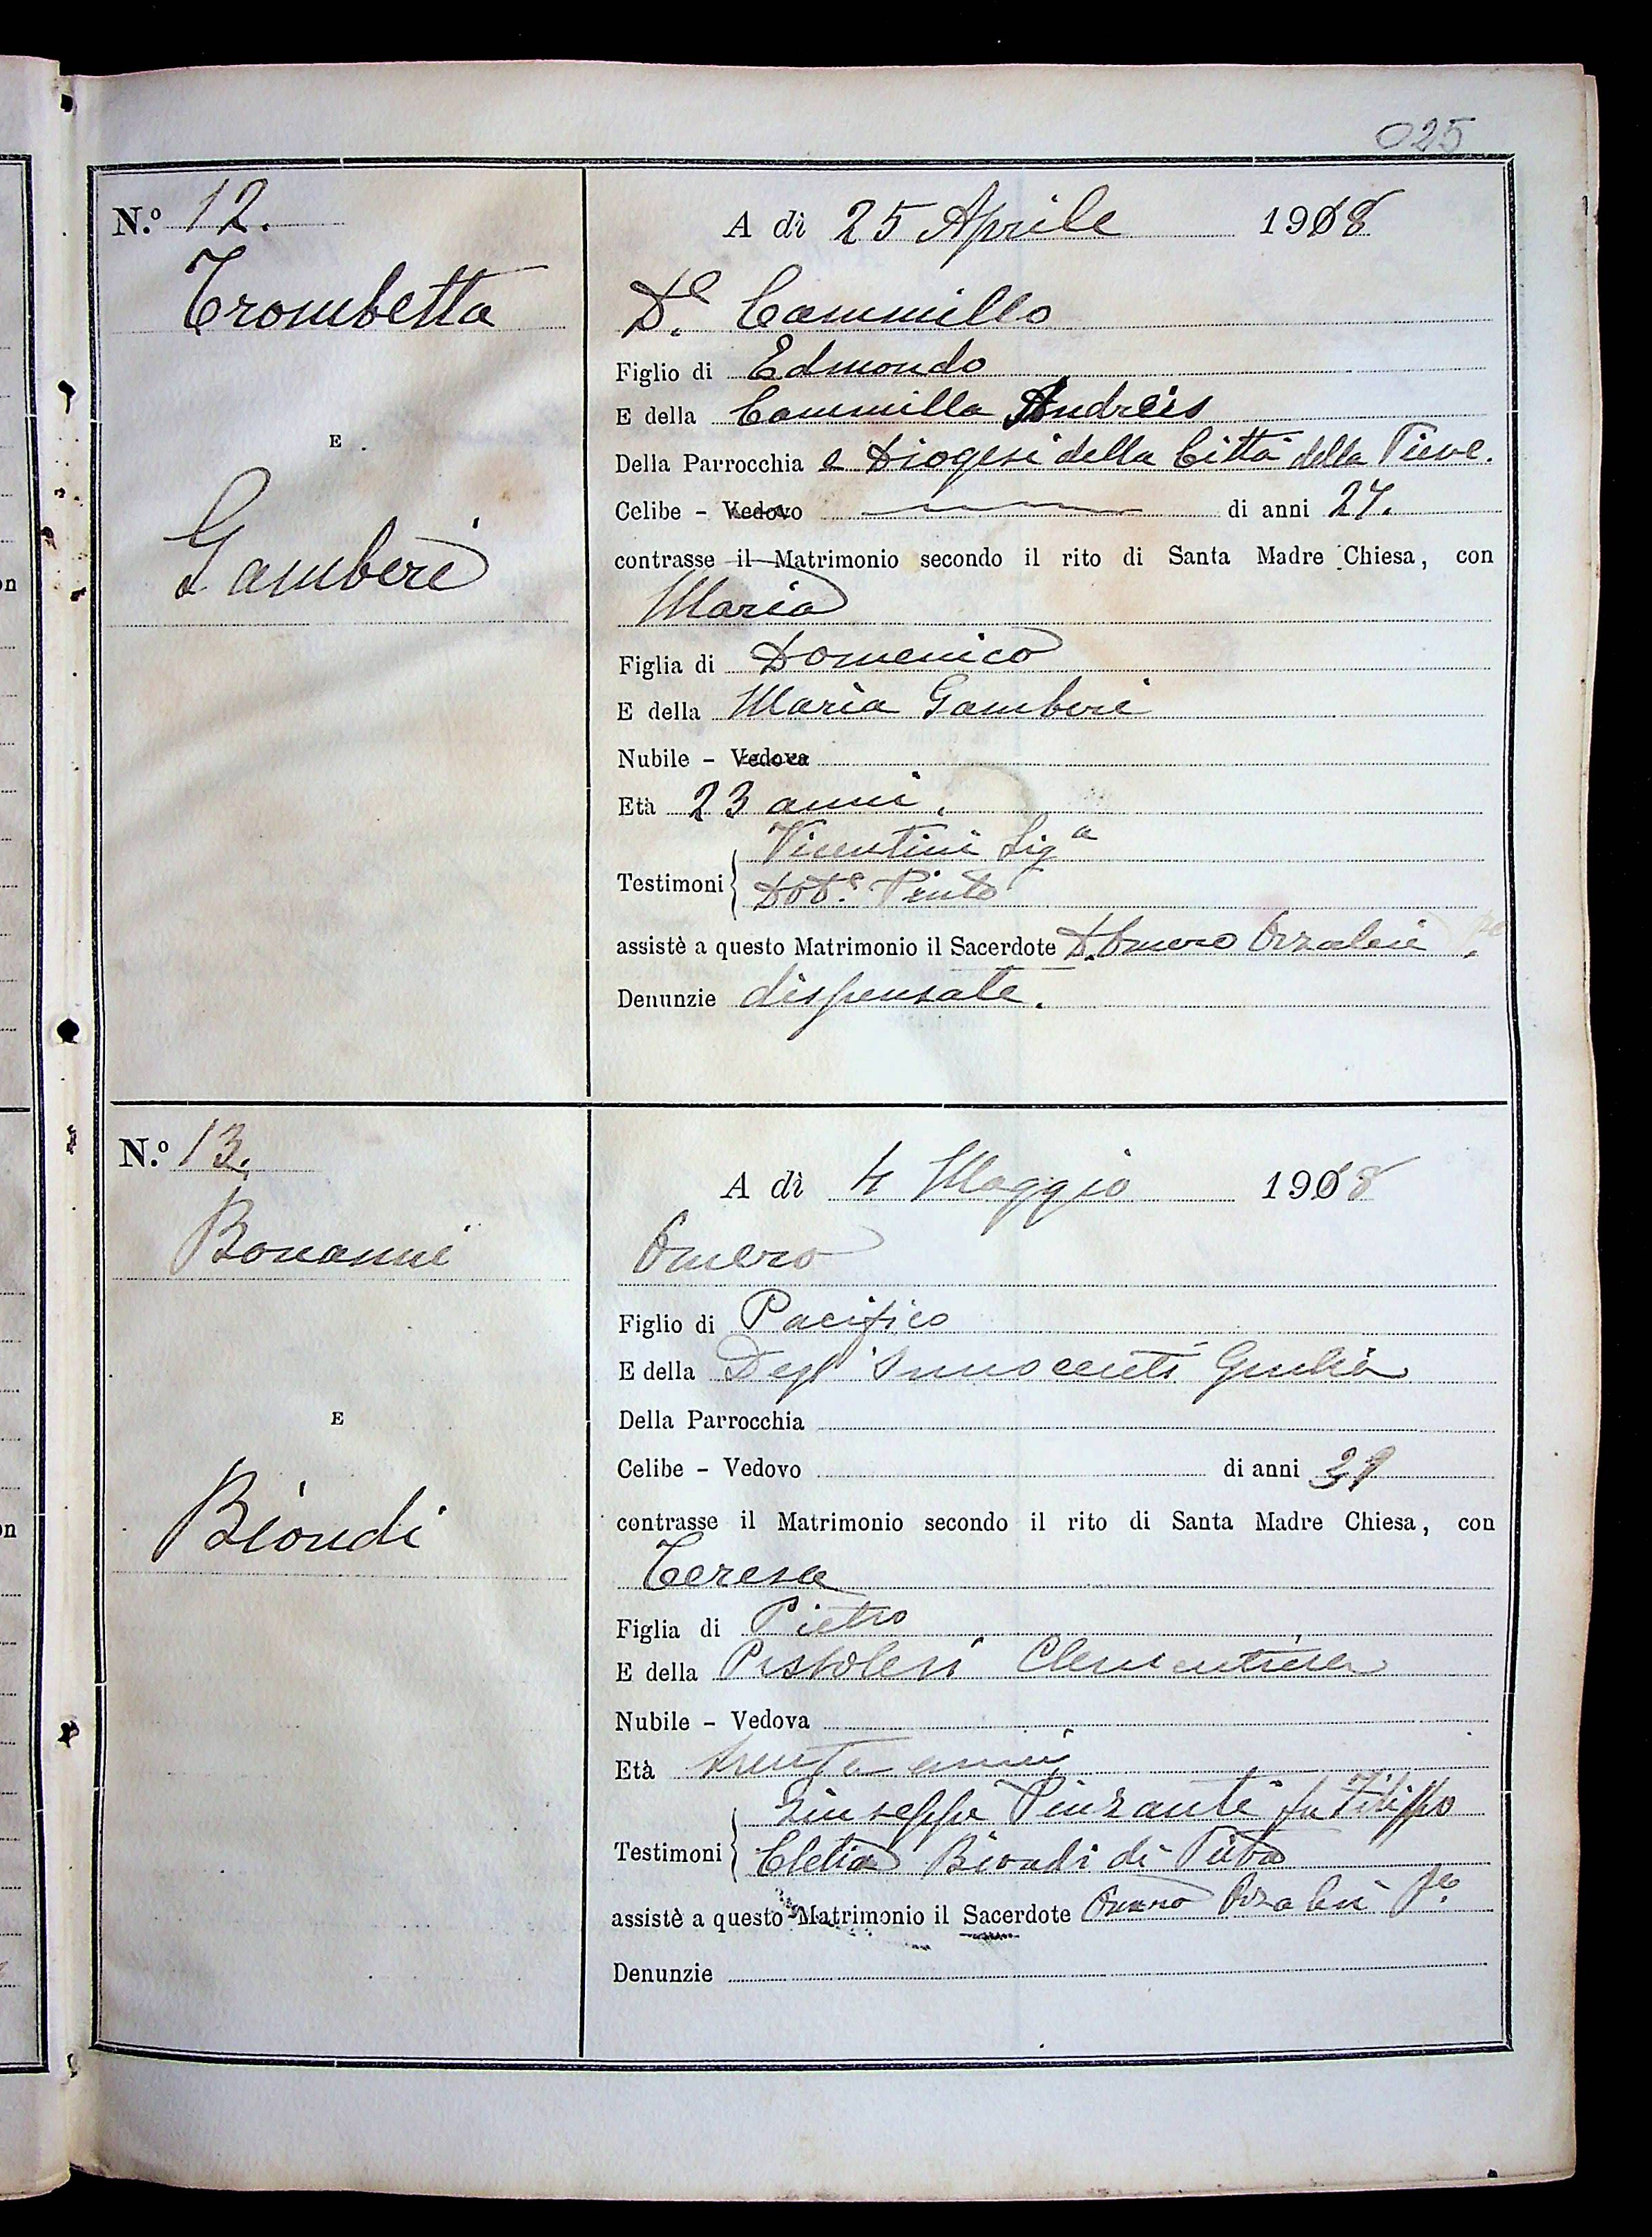 025
N.º 12.
A dì 25 Aprile 1908
Trombetta
D.e Cammillo
Figlio di Edmondo
E della Cammilla Andreis
E
Della Parrocchia e Diogesi della Città della Pieve.
Celibe - Vedovo di anni 27.
Gamberi
contrasse il Matrimonio secondo il rito di Santa Madre Chiesa, con
Maria
Figlia di Domenico
E della Maria Gamberi
Nubile - Vedova
Età 23 anni.
Vicentini Sig.a
Testimoni Dot.e Pinto
assistè a questo Matrimonio il Sacerdote D. Omero Orzalesi
Denunzie dispensate.
N.º 13.
A dì 4 Maggio 1908
Bonanni
Omero
Figlio di Pacifico
E della Degl'Innocenti Giulia
E
Della Parrocchia
Celibe - Vedovo di anni
Biondi
contrasse il Matrimonio secondo il rito di Santa Madre Chiesa, con
Teresa
Figlia di Pietro
E della Pistolesi Clementina
Nubile - Vedova
Età trenta anni
Giuseppe Pinzauti fu Filippo
Testimoni Clelia Biondi di
assistè a questo Matrimonio il Sacerdote Omero Orzalesi
Denunzie